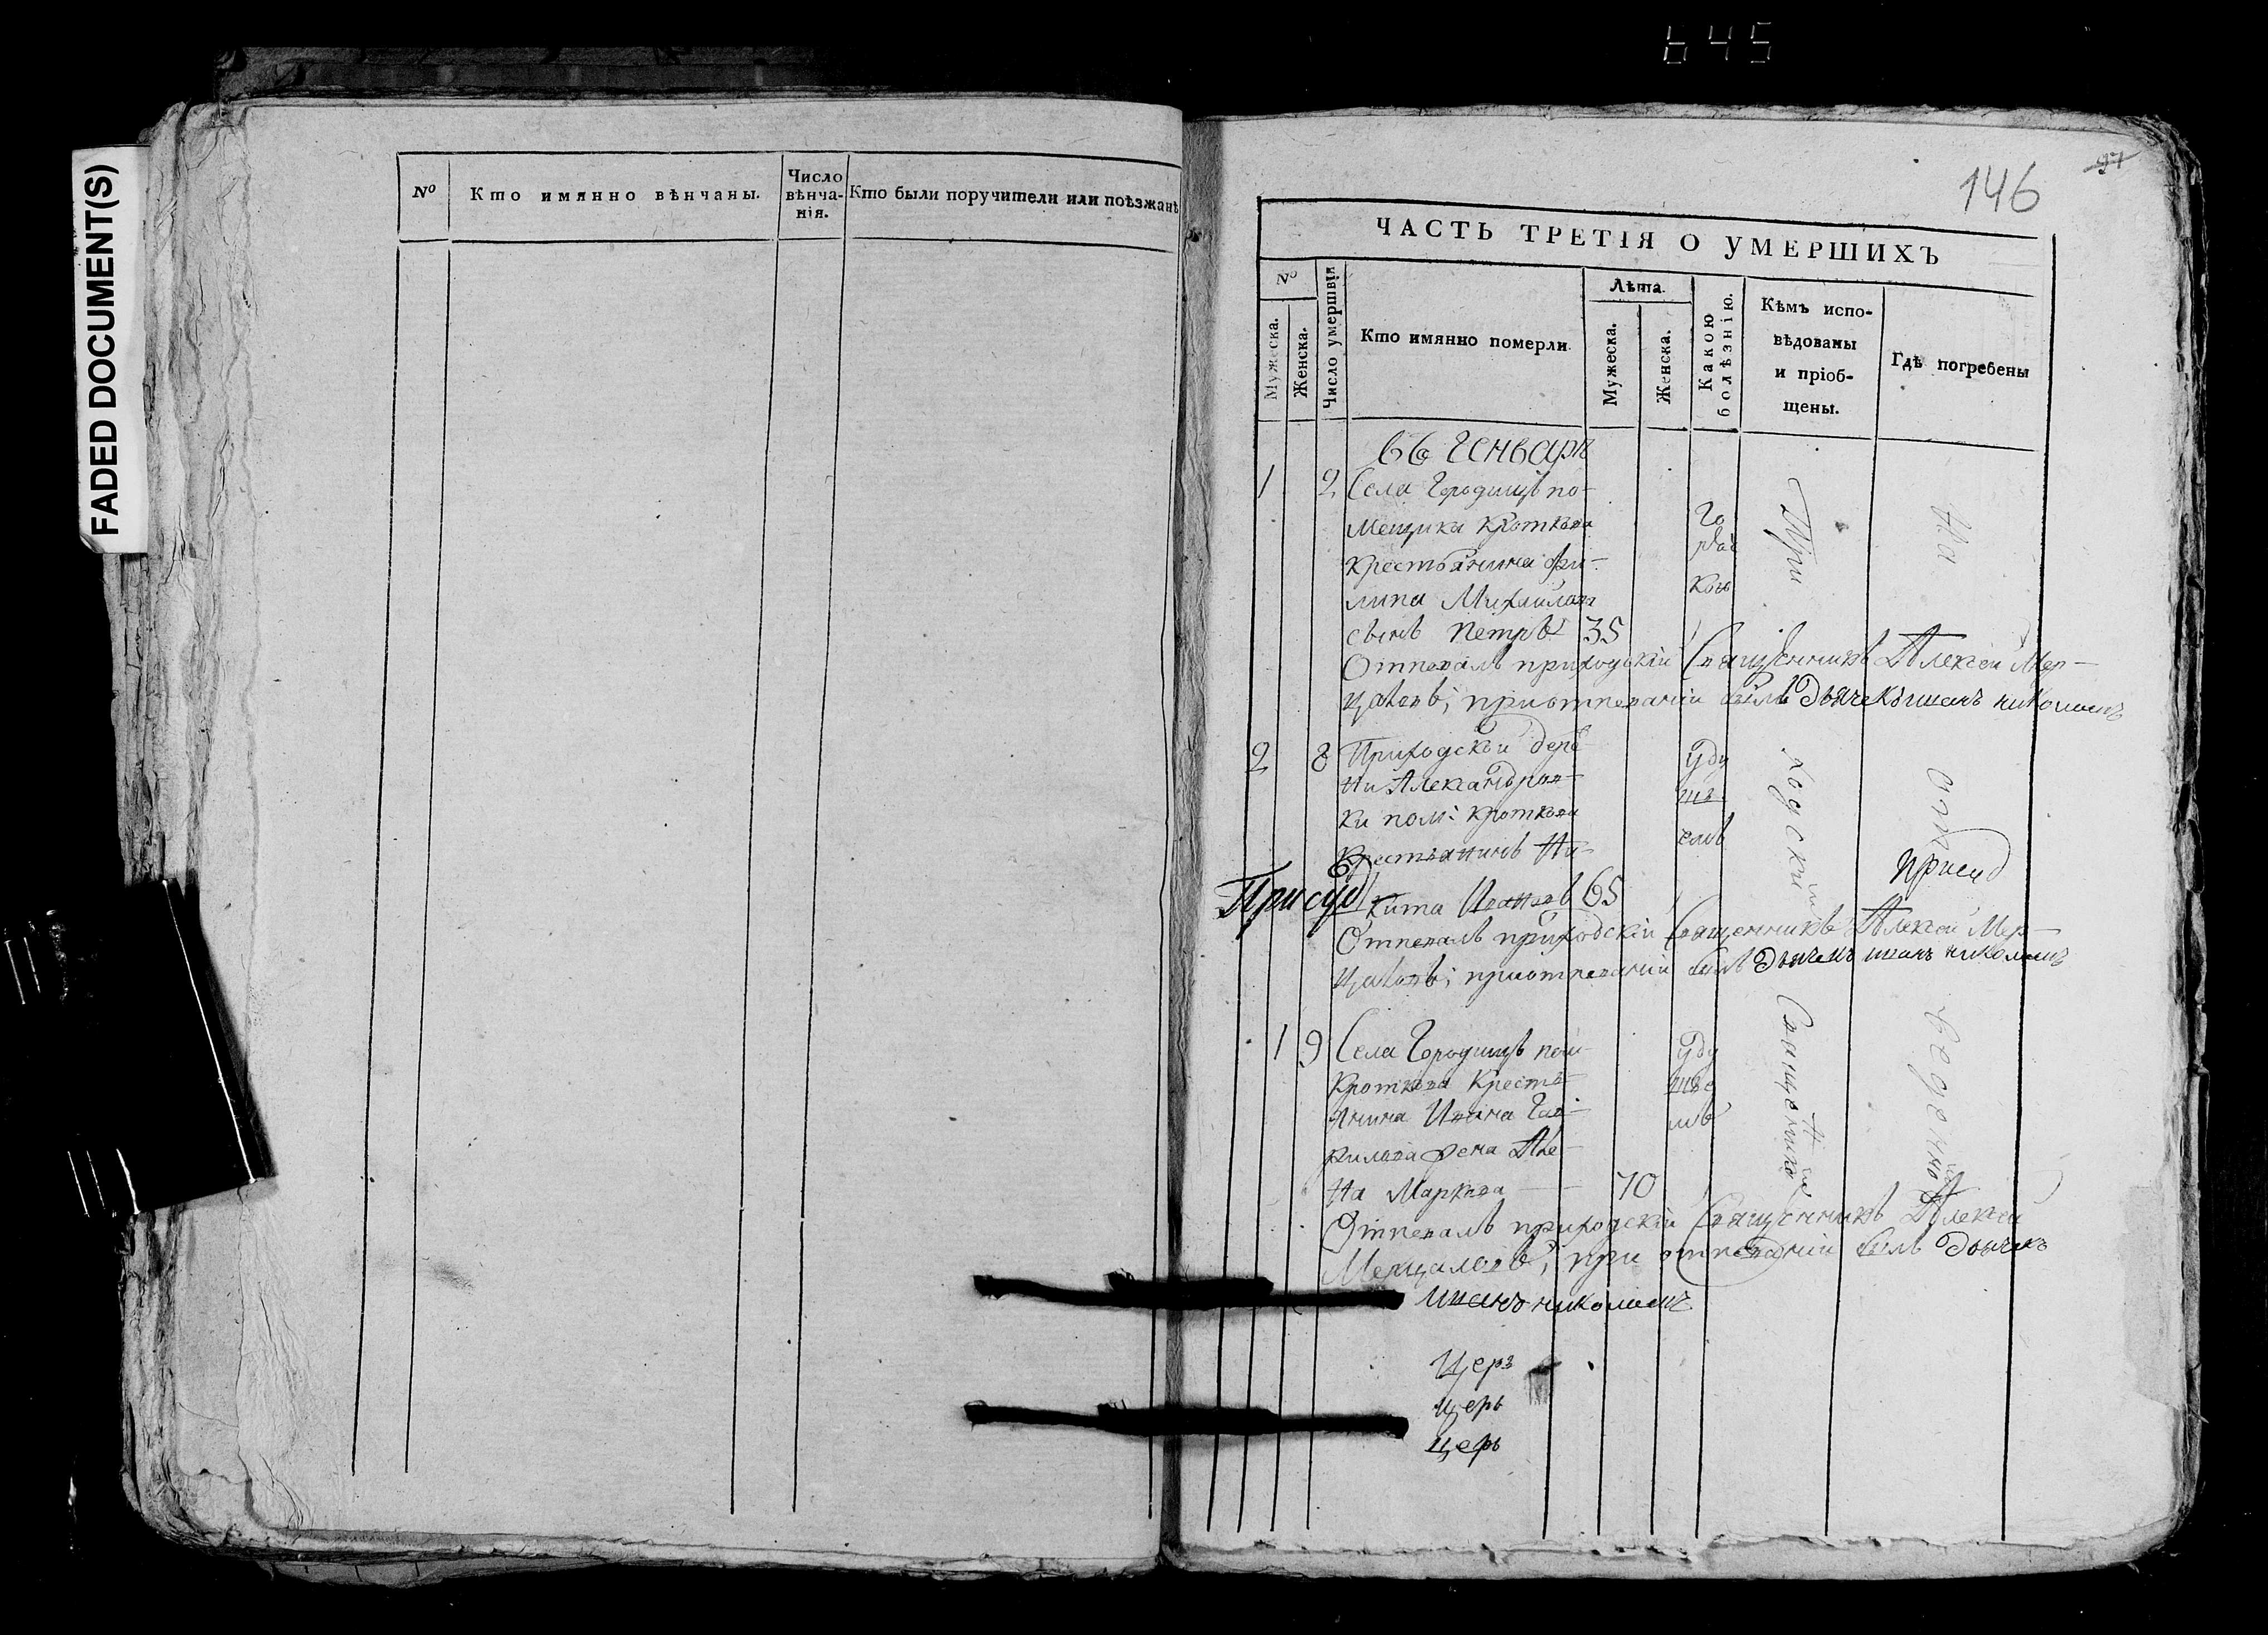 645
FADED DOCUMENT(S)
№
Кто имянно вѣнчаны.
Число вѣнча-
нія.
Кто были поручители или поѣзжанѣ
146
97
ЧАСТЬ ТРЕТІЯ О УМЕРШИХЪ
№
Мужеска.
Женска.
Число умершвія
Кто имянно померли
Лѣта.
Мужеска.
Женска.
Какою
болѣзнію.
Кѣмъ испо-
вѣдованы
и пріоб-
щены.
Гдѣ погребены
въ Генварѣ
1 2 Села Городищъ по-
мещика Кроткова
Крестьянина Фи-
липа Михайлова
сынъ Петръ 35
Го
ряч
кою
Отпевалъ приходскій Священникъ Алексей Мер-
цаловъ; приотпеваніи былъ Дьячекъ иванъ николаевъ
2 8 Приходской дерев
ни Александров-
ки пом: Кроткова
Крестьянинъ Ни-
кита Ивановъ 65
Уду
шъ
емъ
Присуд
Присуд
Отпевалъ приходскій Священникъ Алексей Мер-
цаловъ; приотпеваніи былъ Дьячекъ иванъ николаевъ
1 9 Села Городищъ пом
Кроткова Кресть-
янина Ивана Гав-
рилова жена Ан-
на Маркова 70
Уду
шъе
мъ
Отпевалъ приходскій Священникъ Алексей
Мерцаловъ; при отпеваніи былъ Дьячекъ
иванъ николаевъ
При
ходскій
Священникъ
На
опр
веденно
Церз
церь
церь